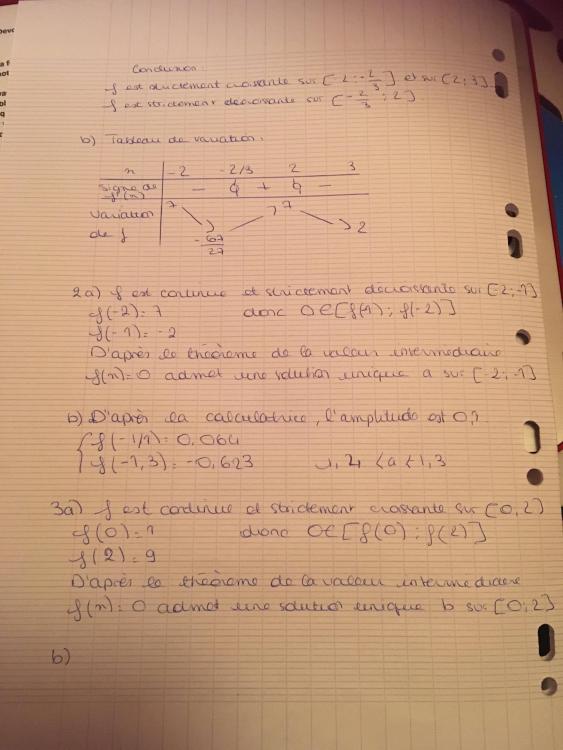 Conclusion :
f est strictement croissante sur [-2 ; -2/3] et sur [2 ; 3]
f est strictement decroissante sur [-2/3 ; 2].
b) Tableau de variation.
x -2 -2/3 2 3
Signe de f'(x) - 0 + 0 -
Variation de f 7 ↘ -67/27 ↗ 7 ↘ 2
2a) f est continue et strictement decroissante sur [-2;-1]
f(-2) = 7 donc 0∈[f(1) ; f(-2)]
f(-1) = -2
D'après le théorème de la valeur intermediaire
f(x) = 0 admet une solution unique a sur [-2;-1]
b) D'après la calculatrice, l'amplitude est 0,1
f(-1,1) = 0,064
f(-1,3) = -0,623 -1,2 < a < 1,3
3a) f est continue et strictement croissante sur [0,2]
f(0) = 1 donc 0∈[f(0) ; f(2)]
f(2) = 9
D'après le théorème de la valeur intermediaire
f(x) = 0 admet une solution unique b sur [0;2]
b)